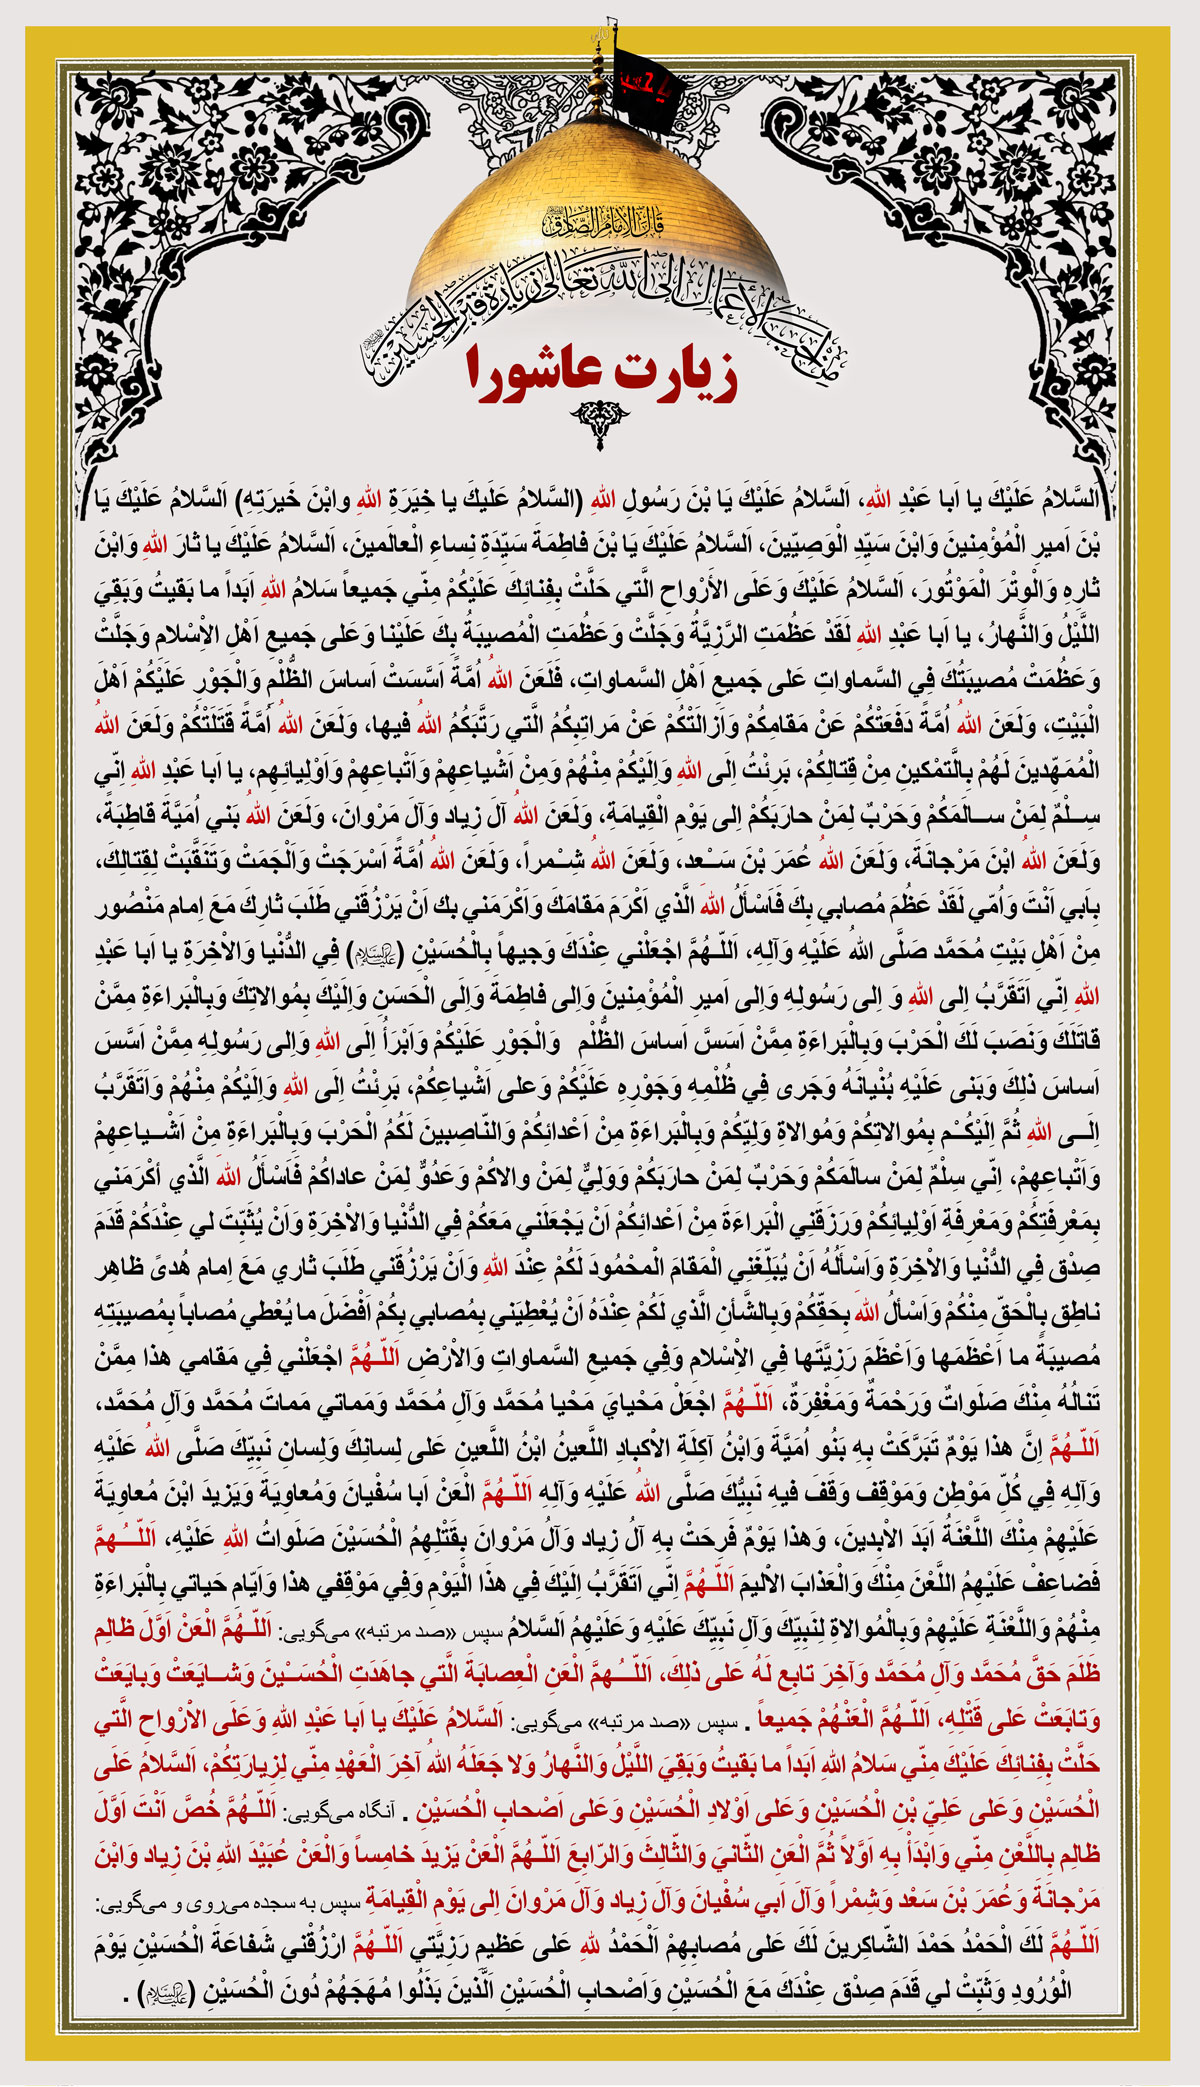 قالَ الاِمامُ الصّادِق
مِن أَحَبِّ الأَعمالِ إلَى اللهِ تَعالى زِيارَةُ قَبرِ الحُسَين
زیارت عاشورا
اَلسَّلامُ عَلَيْكَ يا اَبا عَبْدِ اللهِ، اَلسَّلامُ عَلَيْكَ يَا بْنَ رَسُولِ اللهِ (السَّلامُ عَلَيكَ يا خِيَرَةِ اللهِ وابْنَ خَيرَتِهِ) اَلسَّلامُ عَلَيْكَ يَا
بْنَ اَميرِ الْمُؤْمِنينَ وَابْنَ سَيِّدِ الْوَصِيّينَ، اَلسَّلامُ عَلَيْكَ يَا بْنَ فاطِمَةَ سَيِّدَةِ نِساءِ الْعالَمينَ، اَلسَّلامُ عَلَيْكَ يا ثارَ اللهِ وَابْنَ
ثارِهِ وَالْوِتْرَ الْمَوْتُورَ، اَلسَّلامُ عَلَيْكَ وَعَلَى الأَرْواحِ الَّتي حَلَّتْ بِفِنائِكَ عَلَيْكُمْ مِنّي جَميعاً سَلامُ اللهِ اَبَداً ما بَقيتُ وَبَقِيَ
اللَّيْلُ وَالنَّهارُ، يا اَبا عَبْدِ اللهِ لَقَدْ عَظُمَتِ الرَّزِيَّةُ وَجَلَّتْ وَعَظُمَتِ الْمُصيبَةُ بِكَ عَلَيْنا وَعَلى جَميعِ اَهْلِ الاْسْلام وَجَلَّتْ
وَعَظُمَتْ مُصيبَتُكَ فِي السَّماواتِ عَلى جَميعِ اَهْلِ السَّماواتِ، فَلَعَنَ اللهُ اُمَّةً اَسَّسَتْ اَساسَ الظُّلْمِ وَالْجَوْرِ عَلَيْكُمْ اَهْلَ
الْبَيْتِ، وَلَعَنَ اللهُ اُمَّةً دَفَعَتْكُمْ عَنْ مَقامِكُمْ وَاَزالَتْكُمْ عَنْ مَراتِبِكُمُ الَّتي رَتَّبَكُمُ اللهُ فيها، وَلَعَنَ اللهُ اُمَّةً قَتَلَتْكُمْ وَلَعَنَ اللهُ
الْمُمَهِّدينَ لَهُمْ بِالَّتمْكينِ مِنْ قِتالِكُمْ، بَرِئْتُ اِلَى اللهِ وَاِلَيْكُمْ مِنْهُمْ وَمِنْ اَشْياعِهِمْ وَاَتْباعِهِمْ وَاَوْلِيائِهِم، يا اَبا عَبْدِ اللهِ اِنّي
سِــلْمٌ لِمَنْ ســالَمَكُمْ وَحَرْبٌ لِمَنْ حارَبَكُمْ اِلى يَوْمِ الْقِيامَةِ، وَلَعَنَ اللهُ آلَ زِياد وَآلَ مَرْوانَ، وَلَعَنَ اللهُ بَني اُمَيَّةَ قاطِبَةً،
وَلَعَنَ اللهُ ابْنَ مَرْجانَةَ، وَلَعَنَ اللهُ عُمَرَ بْنَ سَــعْد، وَلَعَنَ اللهُ شِــمْراً، وَلَعَنَ اللهُ اُمَّةً اَسْرَجَتْ وَاَلْجَمَتْ وَتَنَقَّبَتْ لِقِتالِكَ،
بِاَبي اَنْتَ وَاُمّي لَقَدْ عَظُمَ مُصابي بِكَ فَاَسْأَلُ اللهَ الَّذي اَكْرَمَ مَقامَكَ وَاَكْرَمَني بك اَنْ يَرْزُقَني طَلَبَ ثارِكَ مَعَ اِمام مَنْصُور
مِنْ اَهْلِ بَيْتِ مُحَمَّد صَلَّى اللهُ عَلَيْهِ وَآلِهِ، اَللّـهُمَّ اجْعَلْني عِنْدَكَ وَجيهاً بِالْحُسَيْنِ (علیه‌السلام) فِي الدُّنْيا وَالاْخِرَةِ يا اَبا عَبْدِ
اللهِ اِنّي اَتَقَرَّبُ اِلى اللهِ وَ اِلى رَسُولِهِ وَاِلى اَميرِ الْمُؤْمِنينَ وَاِلى فاطِمَةَ وَاِلَى الْحَسَنِ وَاِلَيْكَ بِمُوالاتِكَ وَبِالْبَراءَةِ مِمَّنْ
قاتَلَكَ وَنَصَبَ لَكَ الْحَرْبَ وَبِالْبَراءَةِ مِمَّنْ اَسَسَّ اَساسَ الظُّلْم وَالْجَوْرِ عَلَيْكُمْ وَاَبْرَأُ اِلَى اللهِ وَاِلى رَسُولِهِ مِمَّنْ اَسَّسَ
اَساسَ ذلِكَ وَبَنى عَلَيْهِ بُنْيانَهُ وَجَرى فِي ظُلْمِهِ وَجَوْرِهِ عَلَيْكُمْ وَعلى اَشْياعِكُمْ، بَرِئْتُ اِلَى اللهِ وَاِلَيْكُمْ مِنْهُمْ وَاَتَقَرَّبُ
اِلَــى اللهِ ثُمَّ اِلَيْكُــمْ بِمُوالاتِكُمْ وَمُوالاةِ وَلِيِّكُمْ وَبِالْبَراءَةِ مِنْ اَعْدائِكُمْ وَالنّاصِبينَ لَكُمُ الْحَرْبَ وَبِالْبَراءَةِ مِنْ اَشْــياعِهِمْ
وَاَتْباعِهِمْ، اِنّي سِلْمٌ لِمَنْ سالَمَكُمْ وَحَرْبٌ لِمَنْ حارَبَكُمْ وَوَلِيٌّ لِمَنْ والاكُمْ وَعَدُوٌّ لِمَنْ عاداكُمْ فَاَسْأَلُ اللهَ الَّذي أكْرَمَني
بِمَعْرِفَتِكُمْ وَمَعْرِفَةِ اَوْلِيائِكُمْ وَرَزَقَنِي الْبَراءَةَ مِنْ اَعْدائِكُمْ اَنْ يَجْعَلَني مَعَكُمْ فِي الدُّنْيا وَالاْخِرَةِ وَاَنْ يُثَبِّتَ لي عِنْدَكُمْ قَدَمَ
صِدْق فِي الدُّنْيا وَالاْخِرَةِ وَاَسْأَلُهُ اَنْ يُبَلِّغَنِي الْمَقامَ الْمَحْمُودَ لَكُمْ عِنْدَ اللهِ وَاَنْ يَرْزُقَني طَلَبَ ثاري مَعَ اِمام هُدىً ظاهِر
ناطِق بِالْحَقِّ مِنْكُمْ وَاَسْألُ اللهَ بِحَقِّكُمْ وَبِالشَّأنِ الَّذي لَكُمْ عِنْدَهُ اَنْ يُعْطِيَني بِمُصابي بِكُمْ اَفْضَلَ ما يُعْطي مُصاباً بِمُصيبَتِهِ
مُصيبَةً ما اَعْظَمَها وَاَعْظَمَ رَزِيَّتَها فِي الاْسْلامِ وَفِي جَميعِ السَّماواتِ وَالاْرْضِ اَللّـهُمَّ اجْعَلْني فِي مَقامي هذا مِمَّنْ
تَنالُهُ مِنْكَ صَلَواتٌ وَرَحْمَةٌ وَمَغْفِرَةٌ، اَللّـهُمَّ اجْعَلْ مَحْيايَ مَحْيا مُحَمَّد وَآلِ مُحَمَّد وَمَماتي مَماتَ مُحَمَّد وَآلِ مُحَمَّد،
اَللّـهُمَّ اِنَّ هذا يَوْمٌ تَبَرَّكَتْ بِهِ بَنُو اُمَيَّةَ وَابْنُ آكِلَةِ الأكبادِ اللَّعينُ ابْنُ اللَّعينِ عَلى لِسانِكَ وَلِسانِ نَبِيِّكَ صَلَّى اللهُ عَلَيْهِ
وَآلِهِ فِي كُلِّ مَوْطِن وَمَوْقِف وَقَفَ فيهِ نَبِيُّكَ صَلَّى اللهُ عَلَيْهِ وَآلِهِ اَللّـهُمَّ الْعَنْ اَبا سُفْيانَ وَمُعاوِيَةَ وَيَزيدَ ابْنَ مُعاوِيَةَ
عَلَيْهِمْ مِنْكَ اللَّعْنَةُ اَبَدَ الاْبِدينَ، وَهذا يَوْمٌ فَرِحَتْ بِهِ آلُ زِياد وَآلُ مَرْوانَ بِقَتْلِهِمُ الْحُسَيْنَ صَلَواتُ اللهِ عَلَيْهِ، اَللّــهُمَّ
فَضاعِفْ عَلَيْهِمُ اللَّعْنَ مِنْكَ وَالْعَذابَ الأليمَ اَللّـهُمَّ اِنّي اَتَقَرَّبُ اِلَيْكَ فِي هذَا الْيَوْمِ وَفِي مَوْقِفي هذا وَاَيّامِ حَياتي بِالْبَراءَةِ
مِنْهُمْ وَاللَّعْنَةِ عَلَيْهِمْ وَبِالْمُوالاةِ لِنَبِيِّكَ وَآلِ نَبِيِّكَ عَلَيْهِ وَعَلَيْهِمُ السَّلامُ سپس «صد مرتبه» می‌گویی: اَللّـهُمَّ الْعَنْ اَوَّلَ ظالِم
ظَلَمَ حَقَّ مُحَمَّد وَآلِ مُحَمَّد وَآخِرَ تابِع لَهُ عَلى ذلِكَ، اَللّــهُمَّ الْعَنِ الْعِصابَةَ الَّتي جاهَدَتِ الْحُسَــيْنَ وَشــايَعَتْ وَبايَعَتْ
وَتابَعَتْ عَلى قَتْلِهِ، اَللّـهُمَّ الْعَنْهُمْ جَميعاً . سپس «صد مرتبه» می‌گویی: اَلسَّلامُ عَلَيْكَ يا اَبا عَبْدِ اللهِ وَعَلَى الاْرْواحِ الَّتي
حَلَّتْ بِفِنائِكَ عَلَيْكَ مِنّي سَلامُ اللهِ اَبَداً ما بَقيتُ وَبَقِيَ اللَّيْلُ وَالنَّهارُ وَلا جَعَلَهُ اللهُ آخِرَ الْعَهْدِ مِنّي لِزِيارَتِكُمْ، اَلسَّلامُ عَلَى
الْحُسَيْنِ وَعَلى عَلِيِّ بْنِ الْحُسَيْنِ وَعَلى اَوْلادِ الْحُسَيْنِ وَعَلى اَصْحابِ الْحُسَيْنِ . آنگاه می‌گویی: اَللّـهُمَّ خُصَّ اَنْتَ اَوَّلَ
ظالِم بِاللَّعْنِ مِنّي وَابْدَأْ بِهِ اَوَّلاً ثُمَّ الْعَنِ الثّانيَ وَالثّالِثَ وَالرّابِعَ اَللّـهُمَّ الْعَنْ يَزيدَ خامِساً وَالْعَنْ عُبَيْدَ اللهِ بْنَ زِياد وَابْنَ
مَرْجانَةَ وَعُمَرَ بْنَ سَعْد وَشِمْراً وَآلَ اَبي سُفْيانَ وَآلَ زِياد وَآلَ مَرْوانَ اِلى يَوْمِ الْقِيامَةِ سپس به سجده می‌روی و می‌گویی:
اَللّـهُمَّ لَكَ الْحَمْدُ حَمْدَ الشّاكِرينَ لَكَ عَلى مُصابِهِمْ اَلْحَمْدُ للهِ عَلى عَظيمِ رَزِيَّتي اَللّـهُمَّ ارْزُقْني شَفاعَةَ الْحُسَيْنِ يَوْمَ
الْوُرُودِ وَثَبِّتْ لي قَدَمَ صِدْق عِنْدَكَ مَعَ الْحُسَيْنِ وَاَصْحابِ الْحُسَيْنِ الَّذينَ بَذَلُوا مُهَجَهُمْ دُونَ الْحُسَيْنِ (علیه‌السلام) .